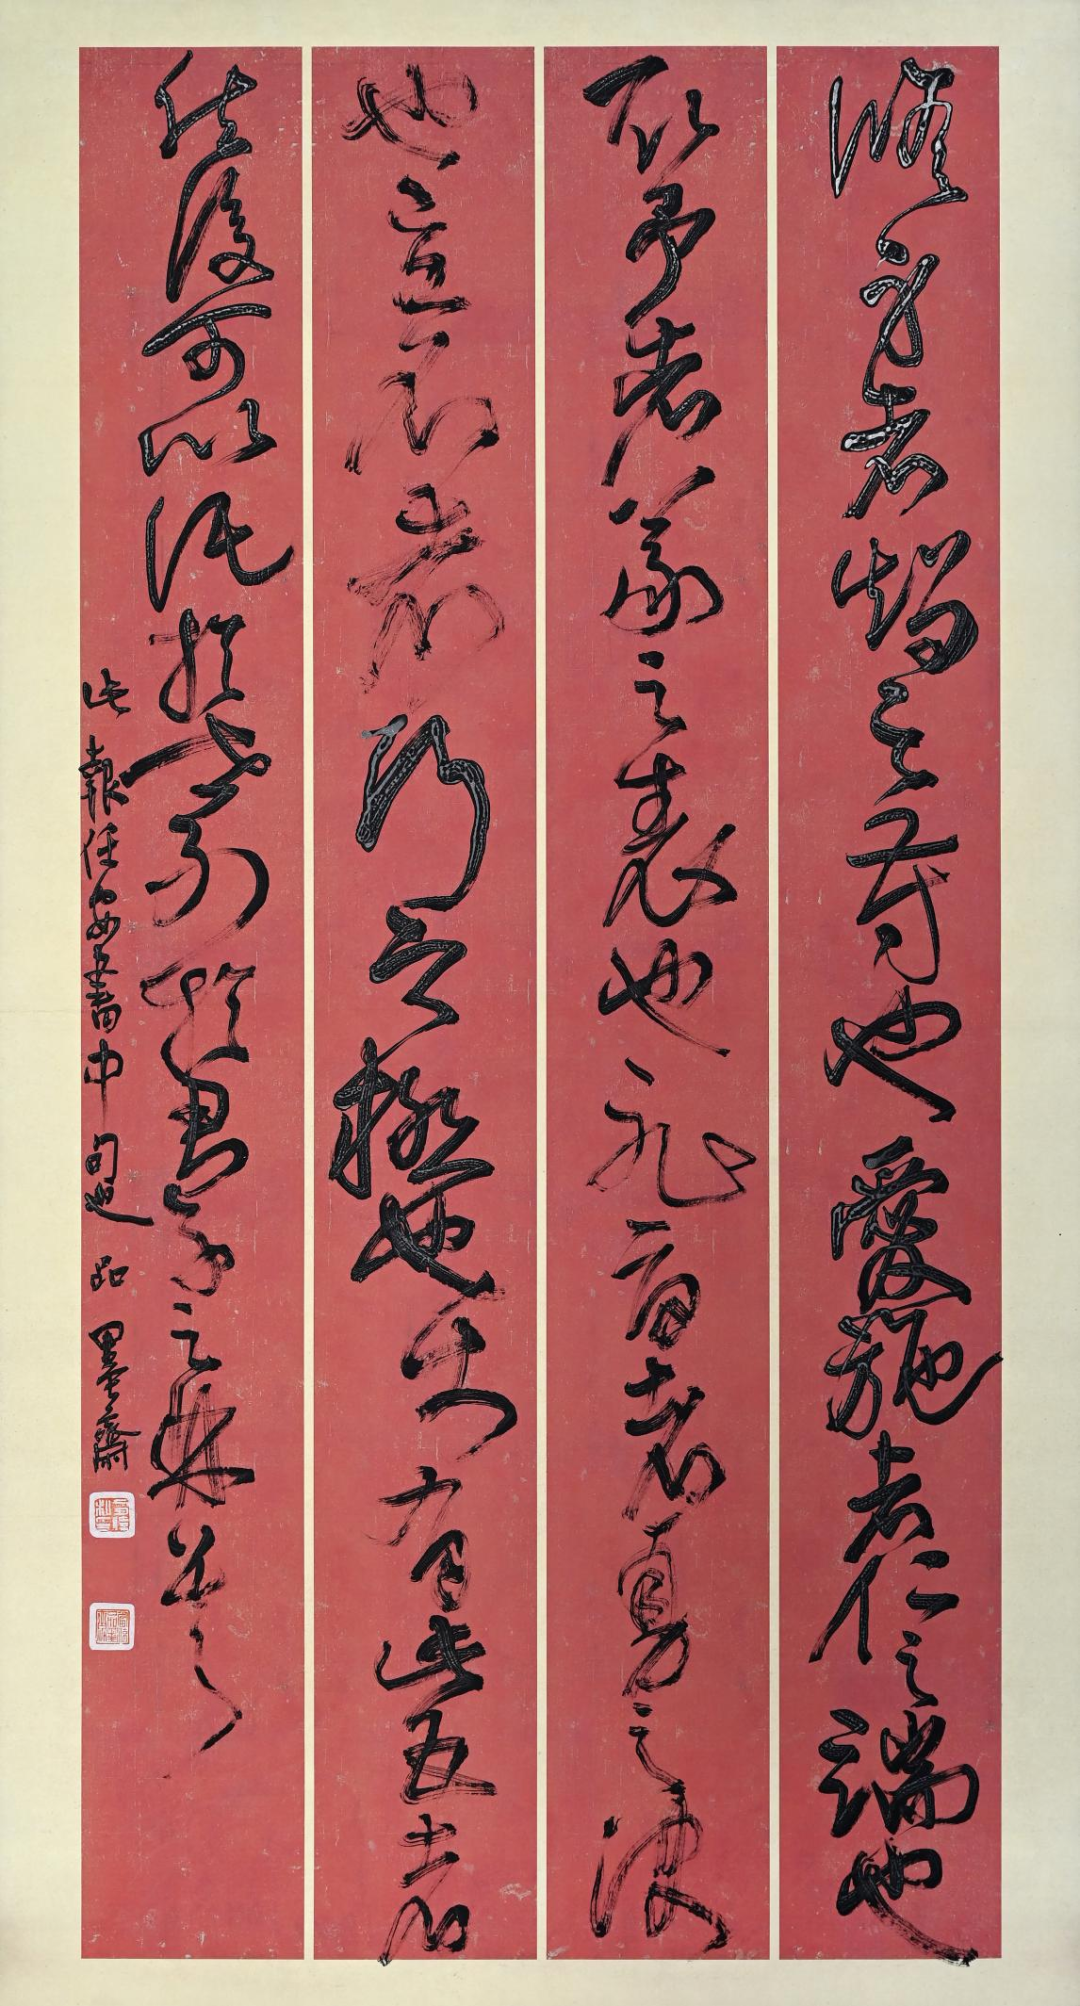 脩身者智之符也愛施者仁之端也
取予者義之表也恥辱者勇之決
也立名者行之極也士有此五者
然後可以託於世列於君子之林矣
此報任安書中句也 品墨齋